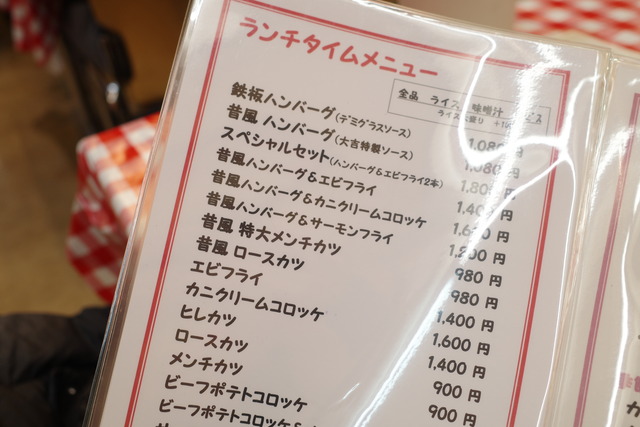 ランチタイムメニュー
全品 ライス 味噌汁
ライス大盛り
鉄板ハンバーグ(デミグラスソース) 1,080円
昔風 ハンバーグ(大吉特製ソース) 1,080円
スペシャルセット(ハンバーグ&エビフライ2本) 1,80 円
昔風ハンバーグ&エビフライ 1,40 円
昔風ハンバーグ&カニクリームコロッケ 円
昔風ハンバーグ&サーモンフライ 1,200 円
昔風 特大メンチカツ 980 円
昔風 ロースカツ 980 円
エビフライ 1,400 円
カニクリームコロッケ 1,600 円
ヒレカツ 1,400 円
ロースカツ 900 円
メンチカツ 900 円
ビーフポテトコロッケ
ビーフポテトコロッケ&